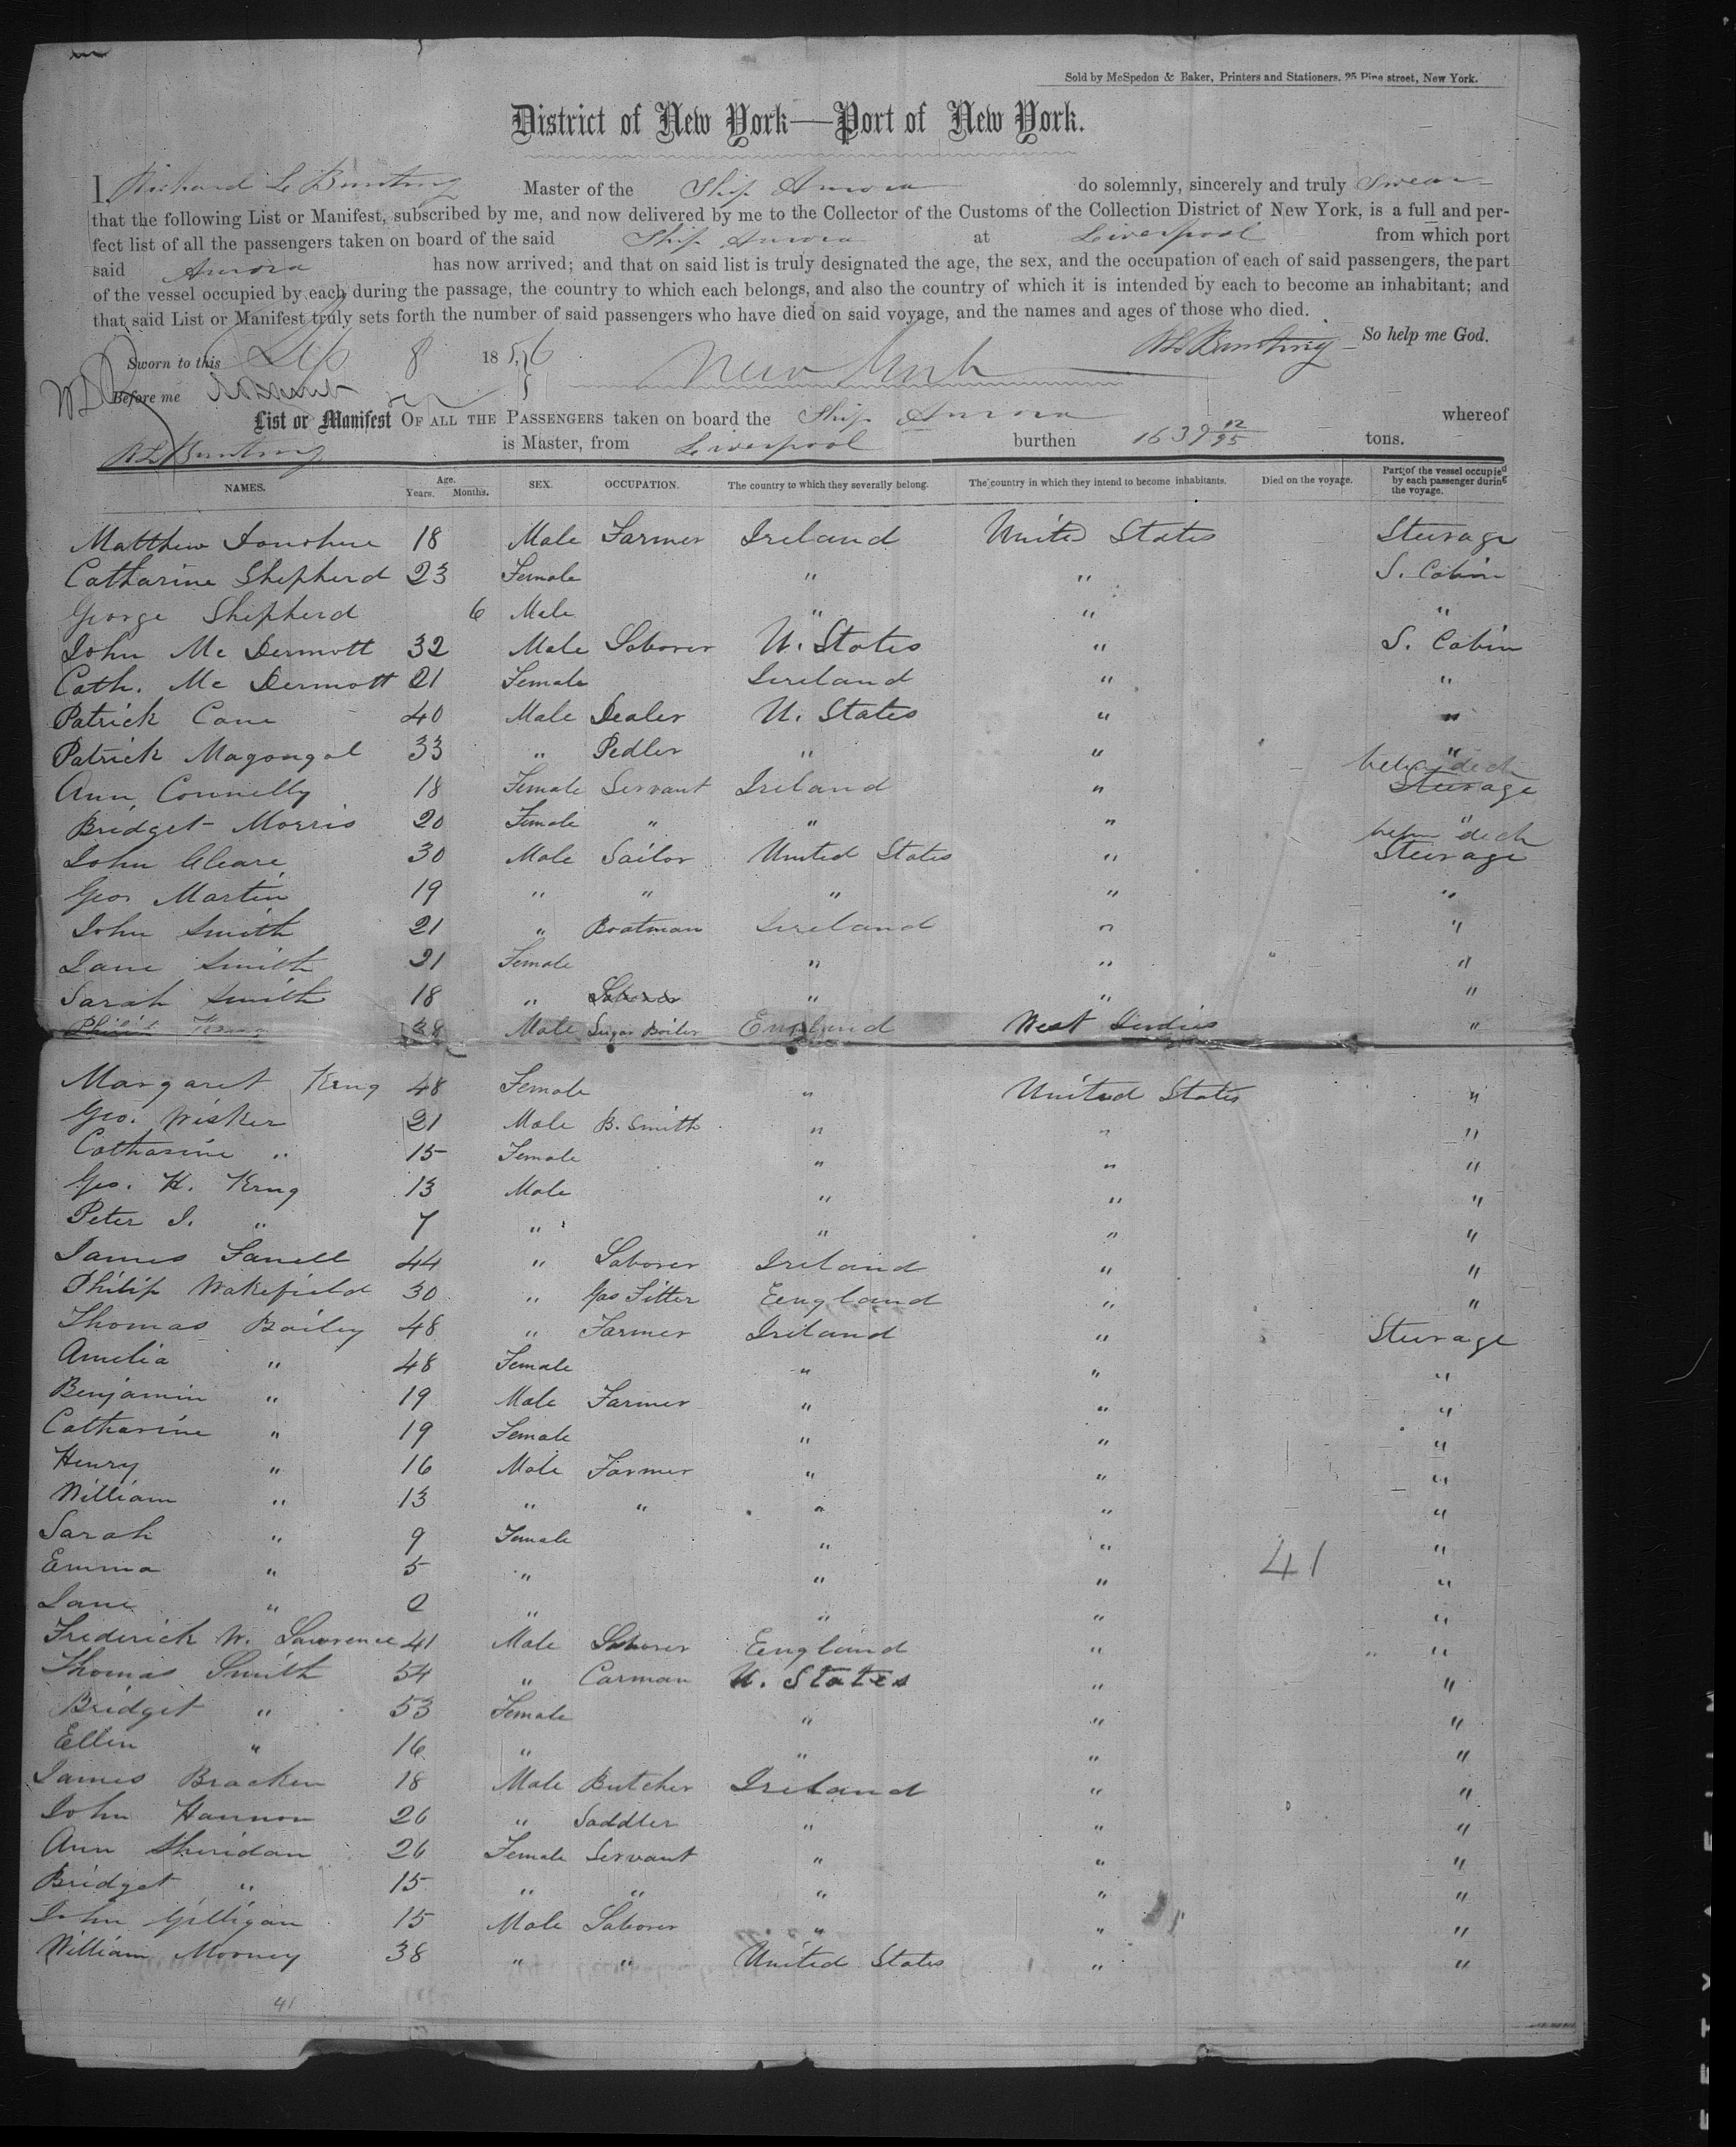 Sold by McSpedon & Baker, Printers and Stationers, 25 Pine street, New York.
District of New York—Port of New York.
I, Richard L Bunting Master of the Ship Aurora do solemnly, sincerely and truly Swear
that the following List or Manifest, subscribed by me, and now delivered by me to the Collector of the Customs of the Collection District of New York, is a full and per-
fect list of all the passengers taken on board of the said Ship Aurora at Liverpool from which port
said Aurora has now arrived; and that on said list is truly designated the age, the sex, and the occupation of each of said passengers, the part
of the vessel occupied by each during the passage, the country to which each belongs, and also the country of which it is intended by each to become an inhabitant; and
that said List or Manifest truly sets forth the number of said passengers who have died on said voyage, and the names and ages of those who died.
Sworn to this Sep 8 1856 New York R L Bunting So help me God.
Before me
List or Manifest OF ALL THE PASSENGERS taken on board the Ship Aurora whereof
R L Bunting is Master, from Liverpool burthen 1639 12/95 tons.
NAMES. Age. Years. Months. SEX. OCCUPATION. The country to which they severally belong. The country in which they intend to become inhabitants. Died on the voyage. Part of the vessel occupied by each passenger during the voyage.
Matthew Donohue 18 Male Farmer Ireland United States Steerage
Catharine Shepherd 23 Female " " S. Cabin
George Shepherd 6 Male " " "
John Mc Dermott 32 Male Laborer U. States " S. Cabin
Cath. Mc Dermott 21 Female Ireland " "
Patrick Cane 40 Male Dealer U. States " "
Patrick Magongal 33 " Pedler " " "
Ann Connelly 18 Female Servant Ireland " below deck Steerage
Bridget Morris 20 Female " " " "
John Cleare 30 Male Sailor United States " below deck Steerage
Geo. Martin 19 " " " " "
John Smith 21 " Boatman Ireland " "
Jane Smith 21 Female " " "
Sarah Smith 18 " Laborer " " "
38 Male Sugar Boiler England West Indies "
Margaret Krug 48 Female " United States "
Geo. Wisker 21 Male B. Smith " " "
Catharine " 15 Female " " "
Geo. H. Krug 13 Male " " "
Peter J. " 7 " " " "
James Farrell 44 " Laborer Ireland " "
Philip Wakefield 30 " Gas Fitter Eengland " "
Thomas Bailey 48 " Farmer Ireland " Steerage
Amelia " 48 Female " " "
Benjamin " 19 Male Farmer " " "
Catharine " 19 Female " " "
Henry " 16 Male Farmer " " "
William " 13 " " " " "
Sarah " 9 Female " " "
Emma " 5 " " " 41 "
Jane " 2 " " " "
Frederick W. Lawrence 41 Male Laborer Eengland " "
Thomas Smith 54 " Carman U. States " "
Bridget " 53 Female " " "
Ellen " 16 " " " "
James Bracken 18 Male Butcher Ireland " "
John Hannon 26 " Saddler " " "
Ann Sheridan 26 Female Servant " " "
Bridget " 15 " " " " "
John Gilligan 15 Male Laborer " " "
William Mooney 38 " " United States " "
41